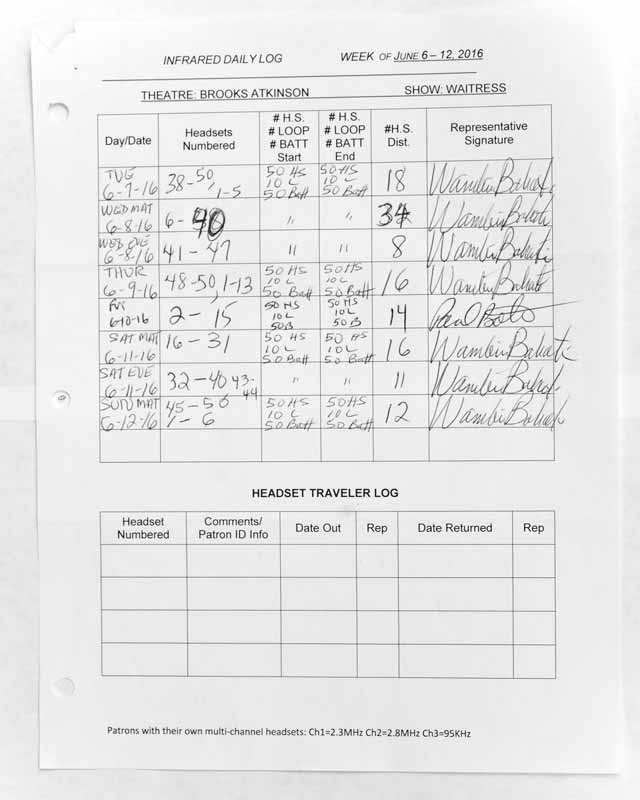 INFRARED DAILY LOG WEEK OF JUNE 6 – 12, 2016
THEATRE: BROOKS ATKINSON SHOW: WAITRESS
Day/Date Headsets Numbered # H.S. # LOOP # BATT Start # H.S. # LOOP # BATT End #H.S. Dist. Representative Signature
TUE 6-7-16 38-50, 1-5 50 HS 10 L 50 Batt 50 HS 10 L 50 Batt 18 Wambui Bahati
WED MAT 6-8-16 6-40 " " 34 Wambui Bahati
WED EVE 6-8-16 41-47 " " 8 Wambui Bahati
THUR 6-9-16 48-50, 1-13 50 HS 10 L 50 Batt 50 HS 10 L 50 Batt 16 Wambui Bahati
Fri 6-10-16 2-15 50 HS 10L 50B 50 HS 10L 50B 14 Paul
SAT MAT 6-11-16 16-31 50 HS 10 L 50 Batt 50 HS 10 L 50 Batt 16 Wambui Bahati
SAT EVE 6-11-16 32-40 43-44 " " 11 Wambui Bahati
SUN MAT 6-12-16 45-50 1-6 50 HS 10 L 50 Batt 50 HS 10 L 50 Batt 12 Wambui Bahati
HEADSET TRAVELER LOG
Headset Numbered Comments/ Patron ID Info Date Out Rep Date Returned Rep
Patrons with their own multi-channel headsets: Ch1=2.3MHz Ch2=2.8MHz Ch3=95KHz